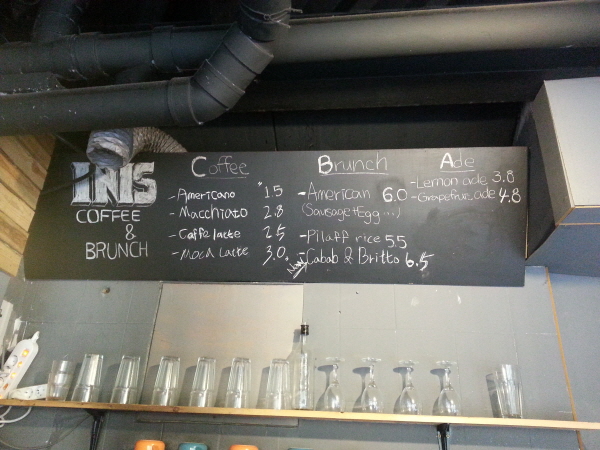 IRIS
COFFEE
&
BRUNCH
Coffee
- Americano 1.5
- Macchiato 2.8
- Caffe latte 2.5
- Moca Latte 3.0
Brunch
- American 6.0
(Sausage + Egg ...)
- Pilaff rice 5.5
New - Cabab & Britto 6.5
Ade
- Lemon ade 3.8
- Grapefruit ade 4.8